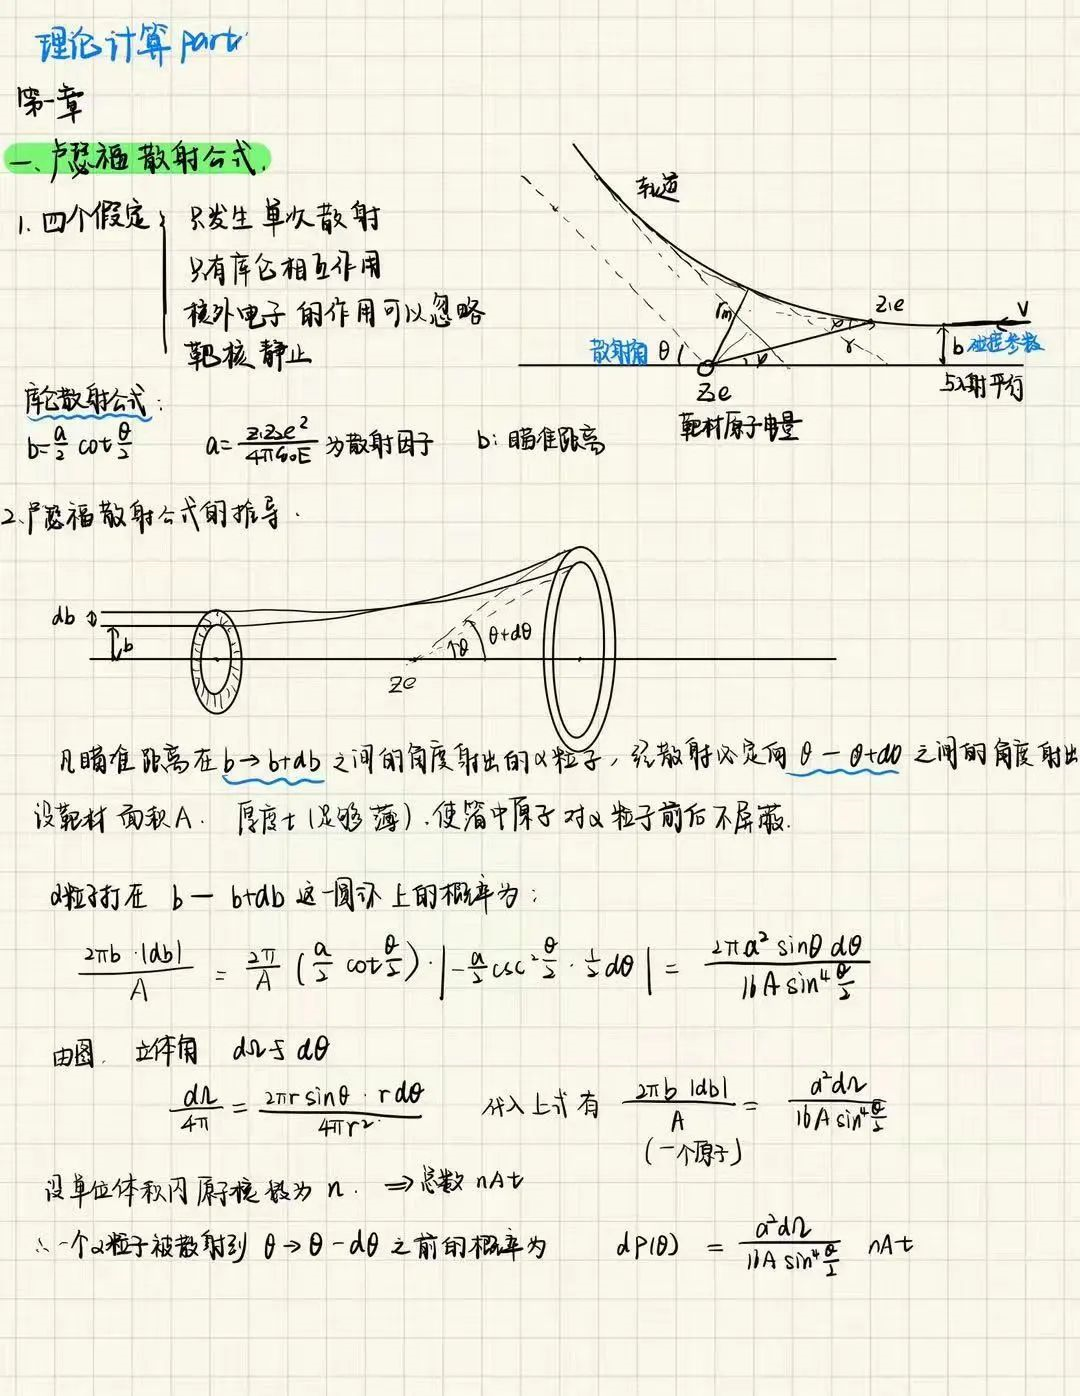 理论计算 part
第一章
一、卢瑟福散射公式.
1. 四个假定: 只发生单次散射
只有库仑相互作用
核外电子的作用可以忽略
靶核静止
轨道
Z₁e
V
rₘ
φ
r
b 碰撞参数
散射角 θ
φ
与入射平行
Z₂e
靶材原子电量
库仑散射公式:
b=a/2 cot θ/2 a=Z₁Z₂e²/4πε₀E 为散射因子 b: 瞄准距离
2. 卢瑟福散射公式的推导.
db
b
θ
θ+dθ
Ze
凡瞄准距离在b→b+db之间的角度射出的α粒子, 经散射必定向θ—θ+dθ之间的角度射出
设靶材面积A. 厚度t(足够薄), 使箔中原子对α粒子前后不屏蔽.
α粒子打在 b — b+db 这一圆环上的概率为:
2πb·|db|/A = 2π/A (a/2 cot θ/2)·|-a/2 csc² θ/2 · 1/2 dθ| = 2πa² sinθ dθ/16A sin⁴ θ/2
由图. 立体角 dΩ与dθ
dΩ/4π = 2πr sinθ · r dθ/4πr² 代入上式有 2πb |db|/A = a²dΩ/16A sin⁴ θ/2
(一个原子)
设单位体积内原子核数为 n. ⇒总数 nAt
∴一个α粒子被散射到 θ→θ-dθ 之前的概率为 dP(θ) = a²dΩ/16A sin⁴ θ/2 nAt